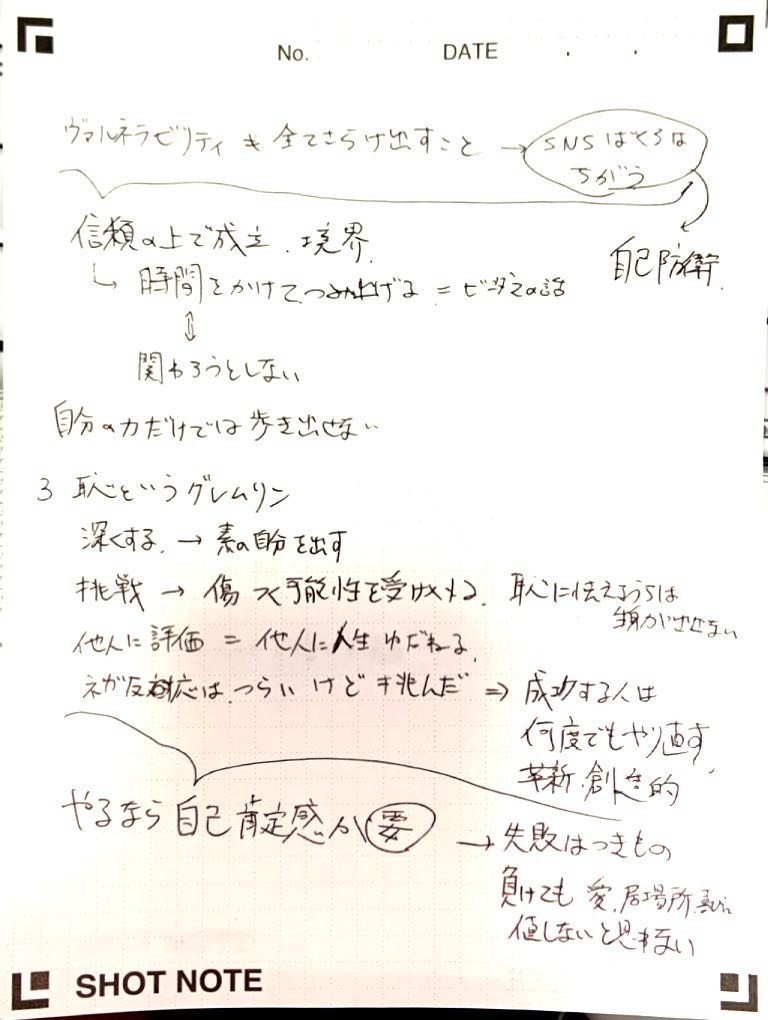 No. DATE ・ ・
ヴァルネラビリティ ≠ 全てさらけ出すこと → SNSばくろは
ちがう
信頼の上で成立、境界
自己防衛
↳ 時間をかけてつみ上げる = ビー玉の話
⇕
関わろうとしない
自分の力だけでは歩き出せない
3 恥というグレムリン
深くする → 素の自分を出す
挑戦 → 傷つく可能性を受け入れる、恥に怯えるうちは
動かせない
他人に評価 = 他人に人生ゆだねる
ネガ反応は、つらいけど挑んだ ⇒ 成功する人は
何度でもやり直す
革新・創造的
やるなら自己肯定感が要
→ 失敗はつきもの
負けても 愛、居場所、喜びに
値しないと思わない
SHOT NOTE